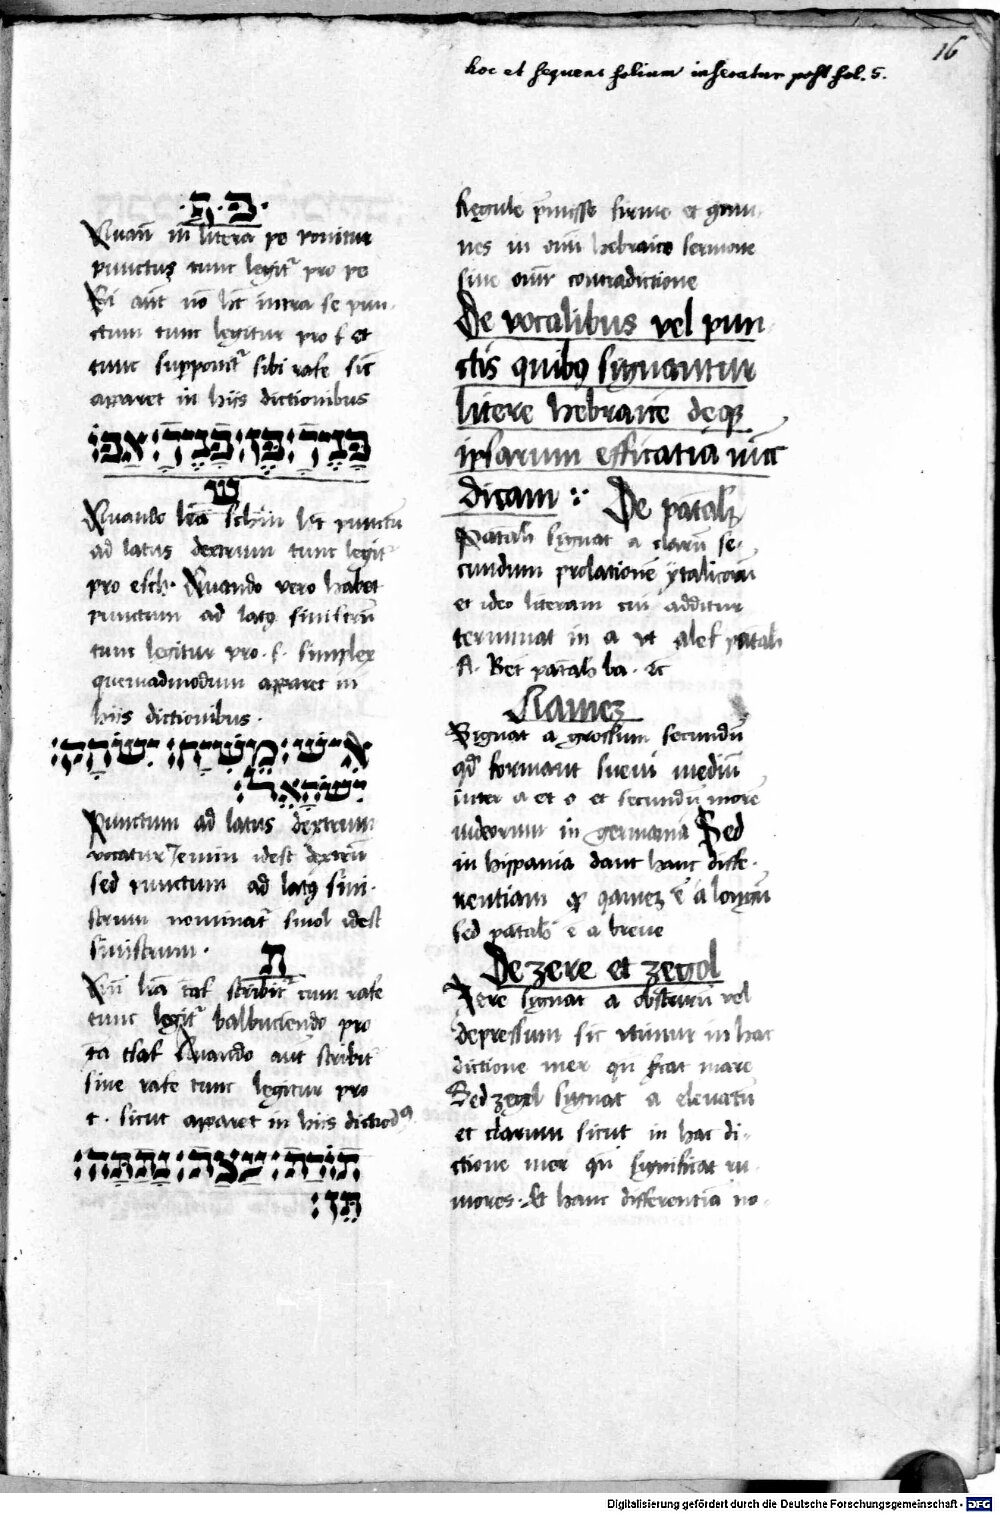 16
hoc et sequens folium inseratur post fol. 5.
· פּ · פ ·
Quañ in litera pe ponitur
punctus tunc legitr pro pe
Si aut no hr intra se pun-
ctum tunc legitur pro f et
tunc supponitr sibi rafe sic
apparet in hiis dictionibus
שׁ
Quando lra schin hr punctu
ad latus dextrum tunc legitr
pro esch. Quando vero habet
punctum ad latq sinistru
tunc legitur pro · s · simplex
quemadmodum apparet in
hiis dictionibus ·
אִישׁ׃ מָשִׁיחַ׃
יִשְׂרָאֵל׃
Punctum ad latus dextrum
vocatur Jemin idest dextru
sed punctum ad latq sini-
strum nominatr smol idest
sinistrum ·
ת
lra taf scribitr cum rafe
tunc legitr balbuciendo pro
Quando aut scribit
sine rafe tunc legitur pro
t · sicut apparet in hiis
תּוֹרָה׃
תֵּן׃
Regule pmisse firme et
nes in omi hebraico sermone
sine omi contradictione
De vocalibus vel pun-
ctis quibq sygnantur
litere hebraice deqz
ipsarum efficatia nuc
dicam :· De patah
Patah sygnat a claru se-
cundum prolatione ytalicoru
et ideo literam cui additur
terminat in a vt alef patah
A · Bet patah ba · zc
Kamez
Signat a grossum secundu
qd formant suevi mediu
inter a et o et secundu more
iudeorum in germania Sed
in hispania dant hanc diffe-
rentiam qz qamez e a longu
sed patah e a breve
De zere et zegol
Zere sygnat a obscuru vel
depressum sic vtimur in hac
dictione mer qu ficat mare
Sed zegol sygnat a elevatu
et clarum sicut in hac di-
ctione mer qu significat ru-
mores · Et hanc differentia no-
Digitalisierung gefördert durch die Deutsche Forschungsgemeinschaft - DFG